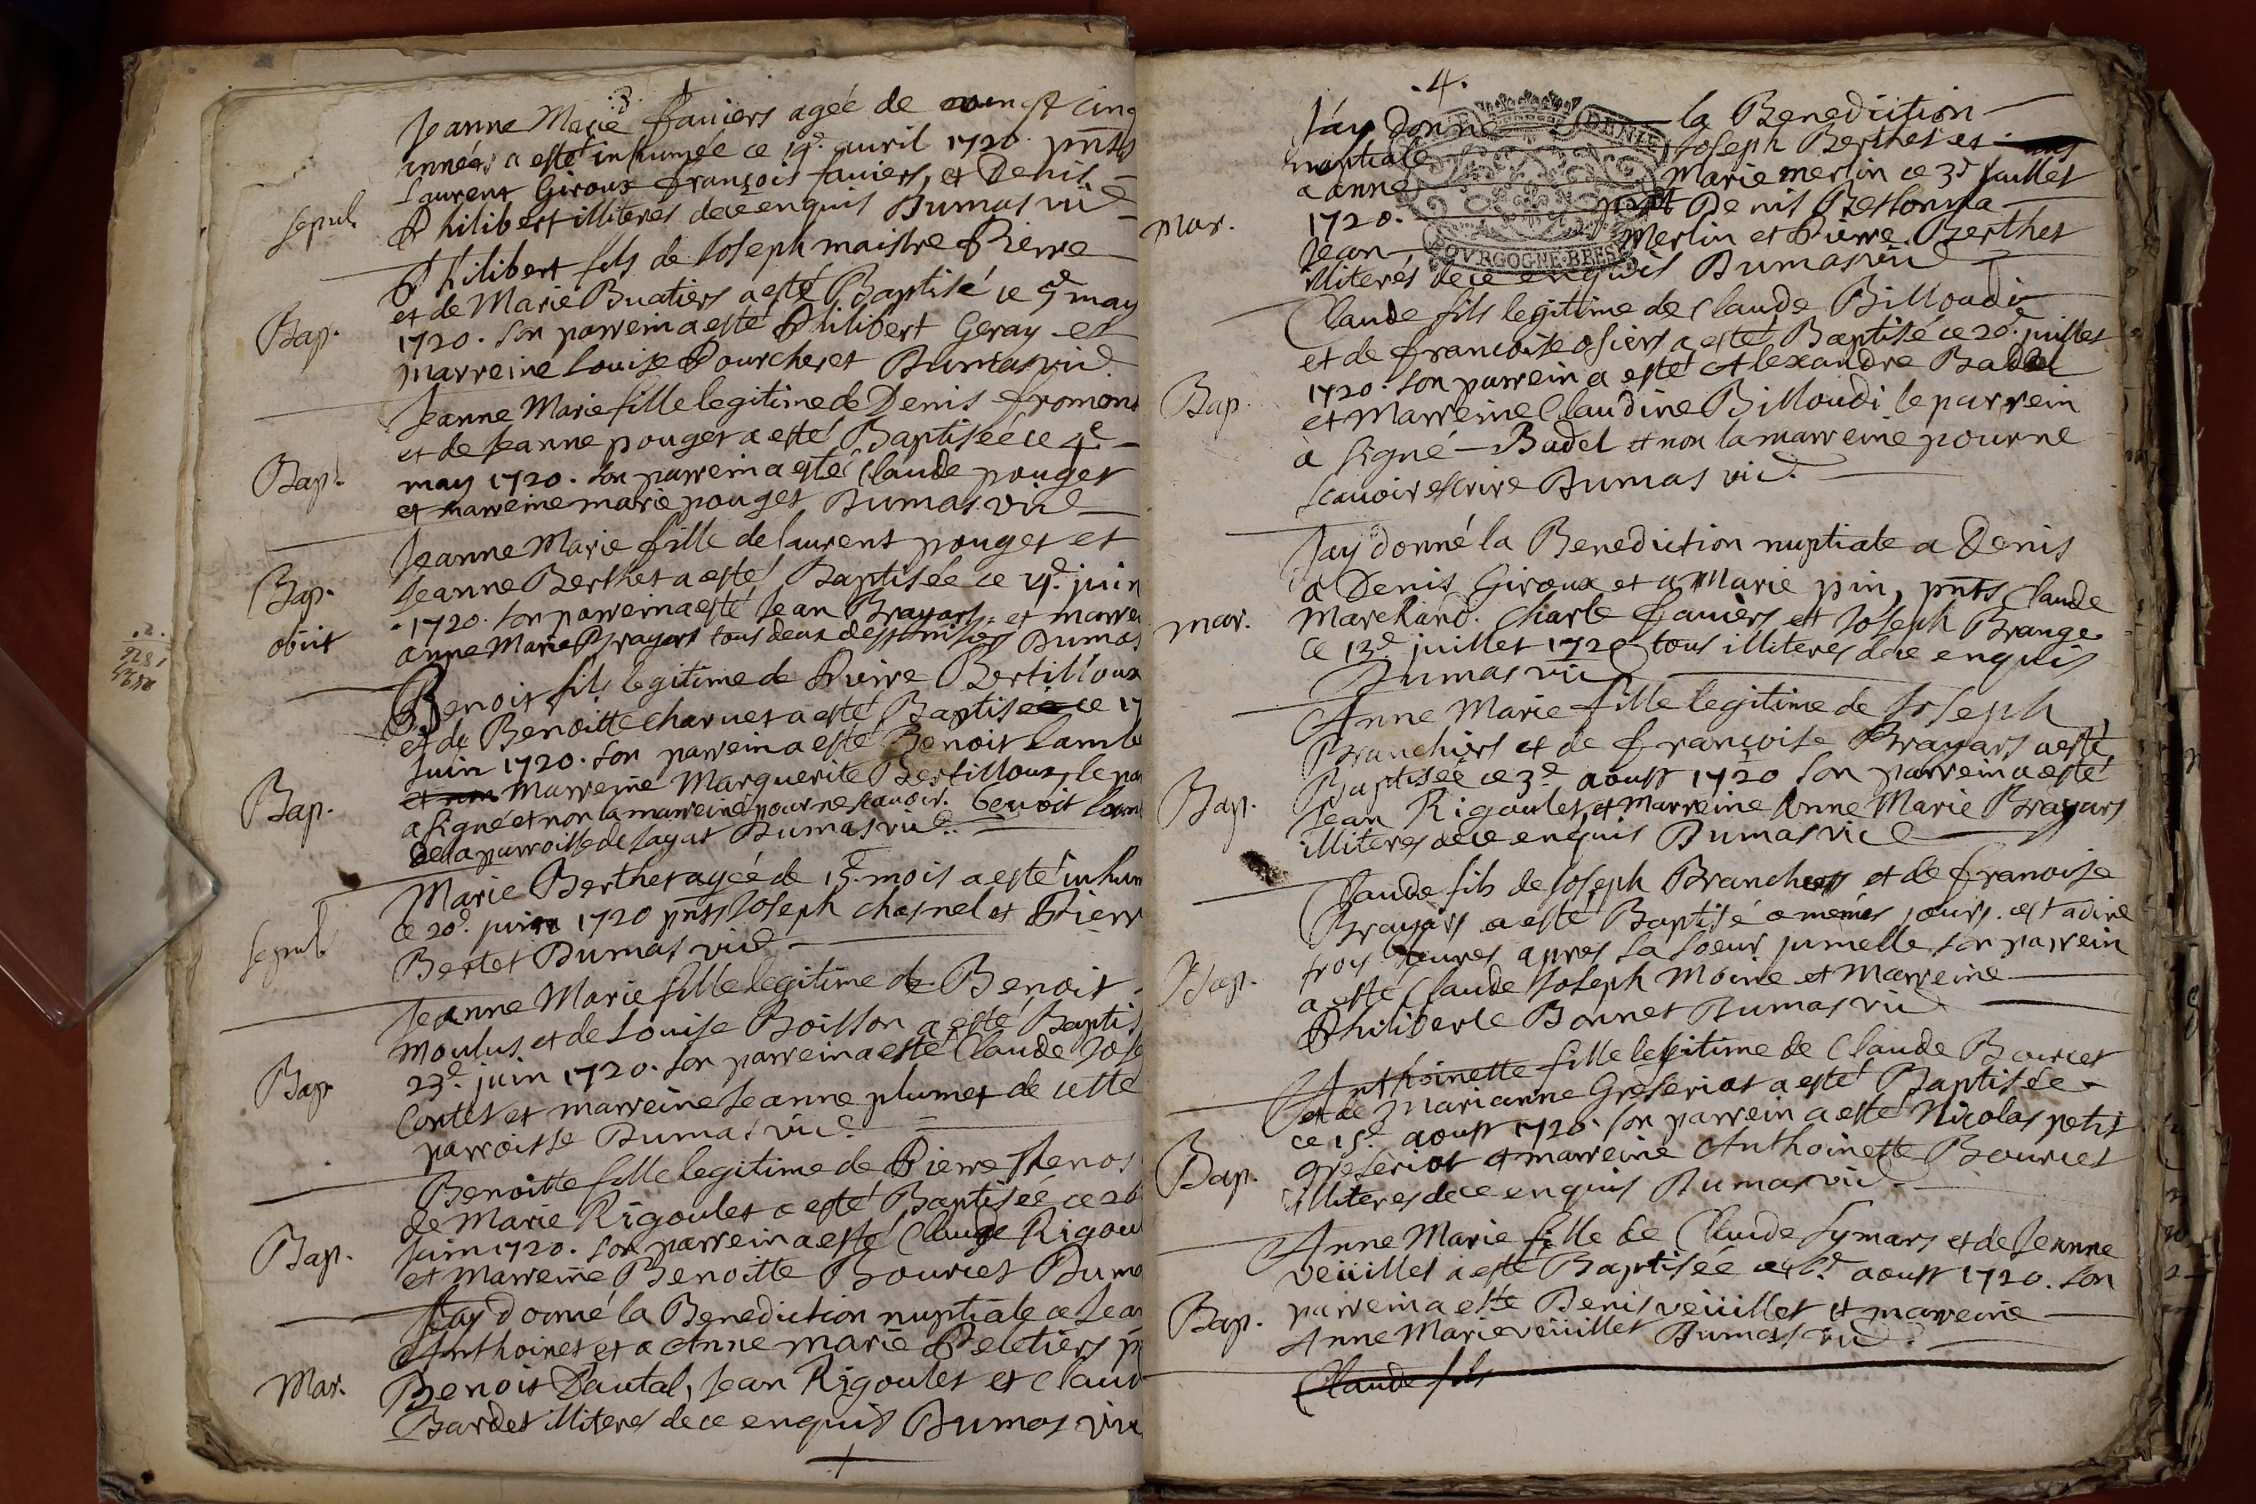 .3.
Jeanne Marie favier agée de vingt cinq
années a esté inhumée ce 4e. avril 1720. pnts
Laurent Giroux françois favier, et Denis
sepul. Philibert illiteres de ce enquis Dumas vic
Philibert fils de Joseph maistre Pierre
et de Marie Buatiers a esté Baptisé ce 5e may
Bap. 1720. son parrein a esté Philibert Geray et
marreine Louise Pourcheret Dumas vic.
Jeanne Marie fille legitime de Denis fromont
et de Jeanne pouget a esté Baptiseé ce 4e
Bap. may 1720. son parrein a esté Claude pouget
et marreine marie pouget Dumas vic
Jeanne Marie fille de laurent pouget et
Bap. Jeanne Berthet a esté Baptisée ce 4e. juin
obiit 1720. son parrein a esté Jean Brayart et marrei
anne Marie Brayart tous deux Dumas
Benoit fils legitime de Pierre Bertilloux
et de Benoitte charvet a esté Baptisée ce 17
Juin 1720. son parrein a esté Benoit Lambe
Bap. et non marreine Marguerite Bertilloux, le pa
a signé et non la marreine pour ne scavoir. benoit lam
de la parroisse de sagat Dumas vic.
Marie Berthet ageé de 15. mois a esté inhum
sepul. ce 20e. juin 1720 pnts Joseph chasnel et Pierr
Bertet Dumas vic
Jeanne Marie fille legitime de Benoit
moulus et de Louise Boisson a esté Baptis
Bap. 23e. juin 1720. son parrein a esté Claude Jose
Contet et marreine Jeanne plumet de cette
parroisse Dumas vic.
Benoitte fille legitime de Pierre Thenos
de Marie Rigoulet a esté Baptiseé ce 26
Bap. Juin 1720. son parrein a esté Claude Rigou
et Marreine Benoitte Bourcet Duma
Jay donné la Benediction nuptiale a Jea
Anthoinet et a Anne marie Peletiers p
Mar. Benoit Dautal, Jean Rigoulet et Claud
Bardet illiteres de ce enquis Dumas vic
.4.
J'ay donné la Benediction
nuptiale Joseph Berthet et
a anne Marie merlin ce 3e Juillet
mar. 1720. pnt Denis Bessonna
Jean Merlin et Pierre Berthet
illiterés de ce enquis Dumas vic
DENIE
BOURGOGNE·BRESS
Claude fils legitime de Claude Billoudi
et de francoise osiers a esté Baptisé ce 20e. juillet
Bap. 1720. son parrein a esté Alexandre Badel
et Marreine Claudine Billoudi le parrein
à signé – Badel et non la marreine pour ne
scavoir escrire Dumas vic.
Jay donné la Benediction nuptiale a Denis
a Denis Giroux et a Marie pin, pnts Claude
mar. Marchand. Charle favier et Joseph Brange
ce 13e juillet 1720 tous illiteres de ce enquis
Dumas vic
Anne Marie fille legitime de Joseph
Branchiers et de françoise Brayars a esté
Bap. Baptiseé ce 3e aoust 1720 son parrein a esté
Jean Rigoulet et marreine Anne Marie Brayars
illiteres de ce enquis Dumas vic
Claude fils de Joseph Branchers et de franoise
Brayars a esté Baptisé a memes jours. cest adire
Bap. trois heures apres sa soeur jumelle son parrein
a esté Claude Joseph Moine et Marreine
Philiberte Bonnet Dumas vic
Anthoinette fille legitime de Claude Bourcet
et de Marianne Greseriot a esté Baptisée
ce 15e. aoust 1720. son parrein a esté Nicolas petit
Bap. greseriot et marreine Anthoinette Bourcet
illiteres de ce enquis Dumas vic
Anne Marie fille de Claude Symars et de Jeanne
veüillet a esté Baptisée ce aoust 1720. son
Bap. parrein a esté Benis veüillet et marreine
Anne Marie veüillet Dumas vic
Claude fils